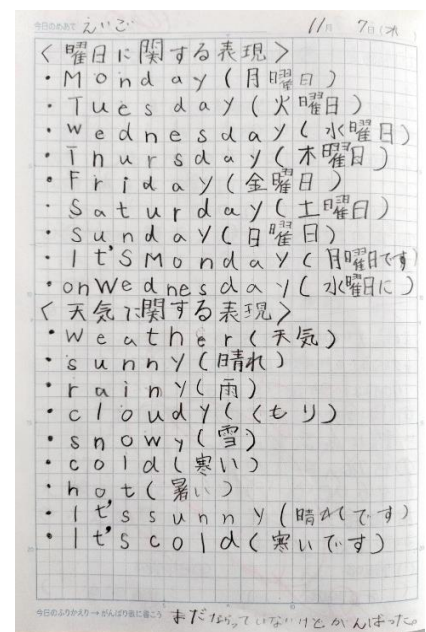 今日のめあて えいご 11月 7日(水)
<曜日に関する表現>
・Monday(月曜日)
・Tuesday(火曜日)
・Wednesday(水曜日)
・Thursday(木曜日)
・Friday(金曜日)
・Saturday(土曜日)
・Sunday(日曜日)
・It'S Monday(月曜日です)
・onWednesday(水曜日に)
<天気に関する表現>
・Weather(天気)
・sunny(晴れ)
・rainy(雨)
・cloudy(くもり)
・snowy(雪)
・cold(寒い)
・hot(暑い)
・It'ssunny(晴れです)
・It'Scold(寒いです)
今日のふりかえり→がんばり表に書こう まだならっていないけどがんばった。